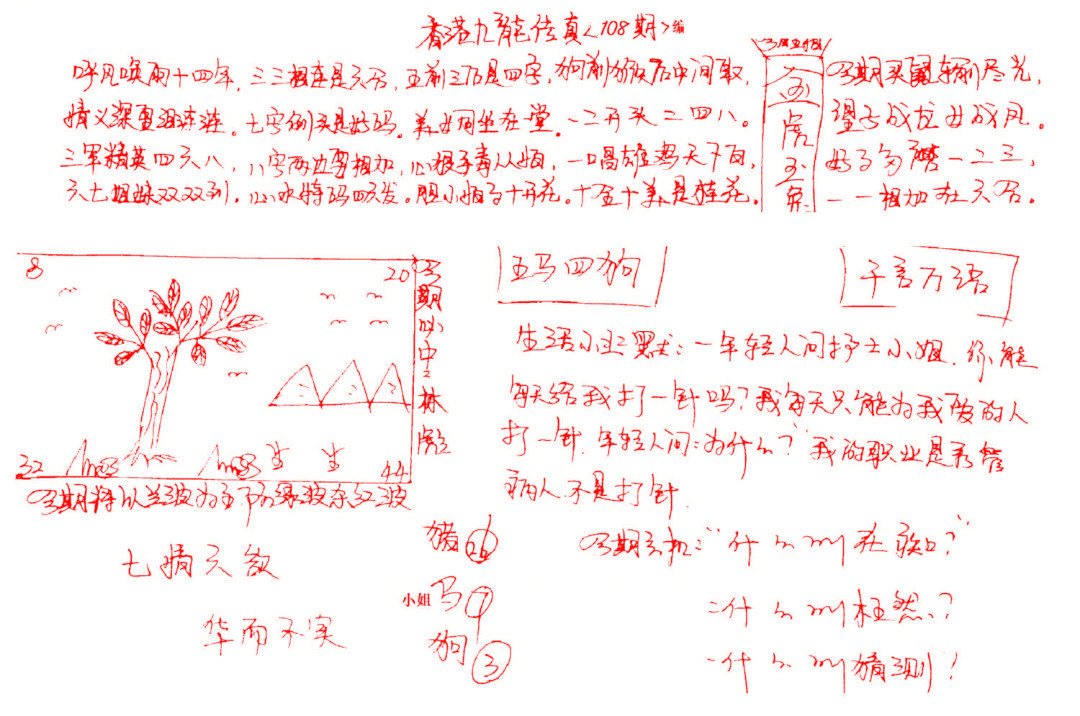 香港九龍传真<108期>编
呼风唤雨十四年，三三相连是六合，五前三后是四字，狗前猴后中间取，
情义深重泪涟涟。七字例又是好码。美女同坐在堂。一二开头二四八。
三军精英四六八，八字两边要相加，心狠手毒从娘，一唱雄鸡天下白，
六七姐妹双双到，心水特码四六发。胆小娘子十开花。十全十美是桂花。
今期买鼠车前尽光，
望子成龙女成凤。
好了句 一二三，
一一相加在六合。
五马四狗
千言万语
8
20
32
44
生 生
今期心中林
今期特以兰波为主防绿波杂红波
生活小 ：一年轻人问护士小姐，你能
每天给我打一针吗？我每天只能为我爱的人
打一针，年轻人问：为什么？我的职业是看管
病人不是打针
今期玄机："什么叫在 ？"
二什么叫枉然？
一什么叫猜测？
七情六欲
华而不实
猪
小姐 马 7
狗 3